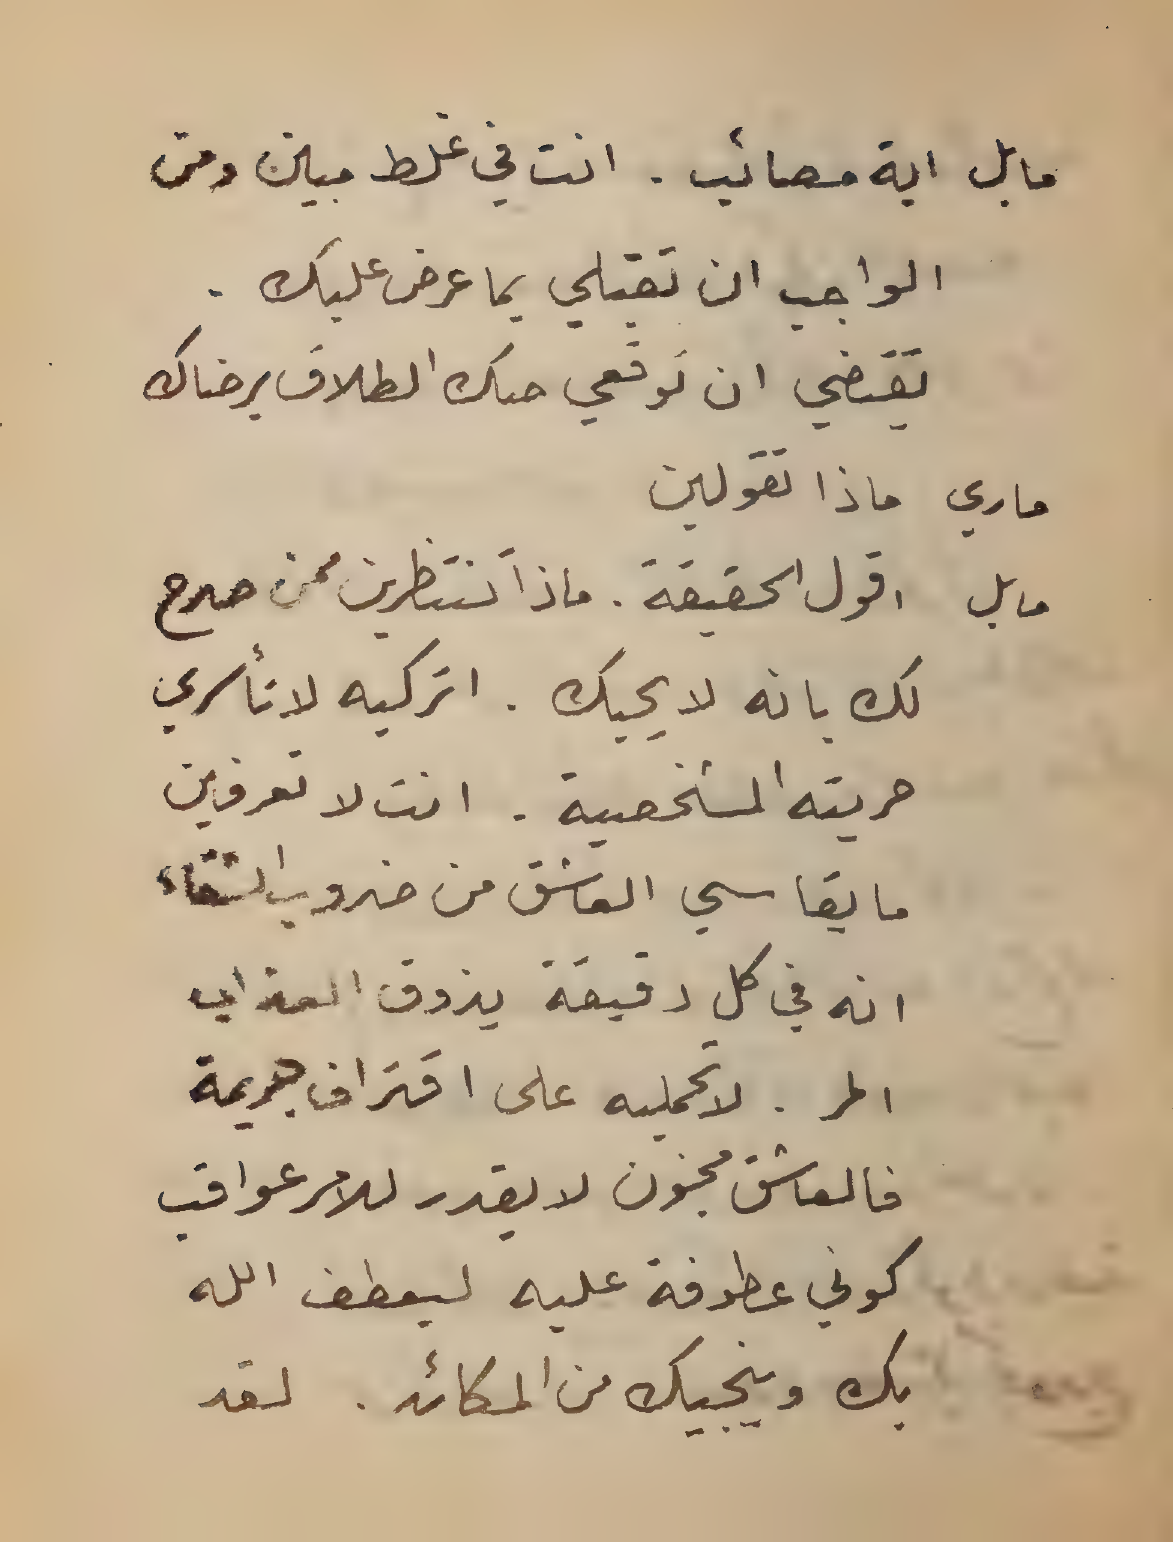 مابل اية مصائب . انت في غلط مبين ومن
الواجب ان تقبلي بما عرض عليك .
تقتضي ان توقعي صك الطلاق برضاك
ماري ماذا تقولين
مابل اقول الحقيقة . ماذا تنتظرين ممن صرح
لك بانه لا يحبك . اتركيه لا تأسري
حريته الشخصية . انت لا تعرفين
ما يقاسي العاشق من ضروب الشقاء
انه في كل دقيقة يذوق العذاب
المر . لا تحمليه على اقتراف جريمة
فالعاشق مجنون لا يقدر للامر عواقب
كوني عطوفة عليه ليعطف الله
بك وينجيك من المكائد . لقد